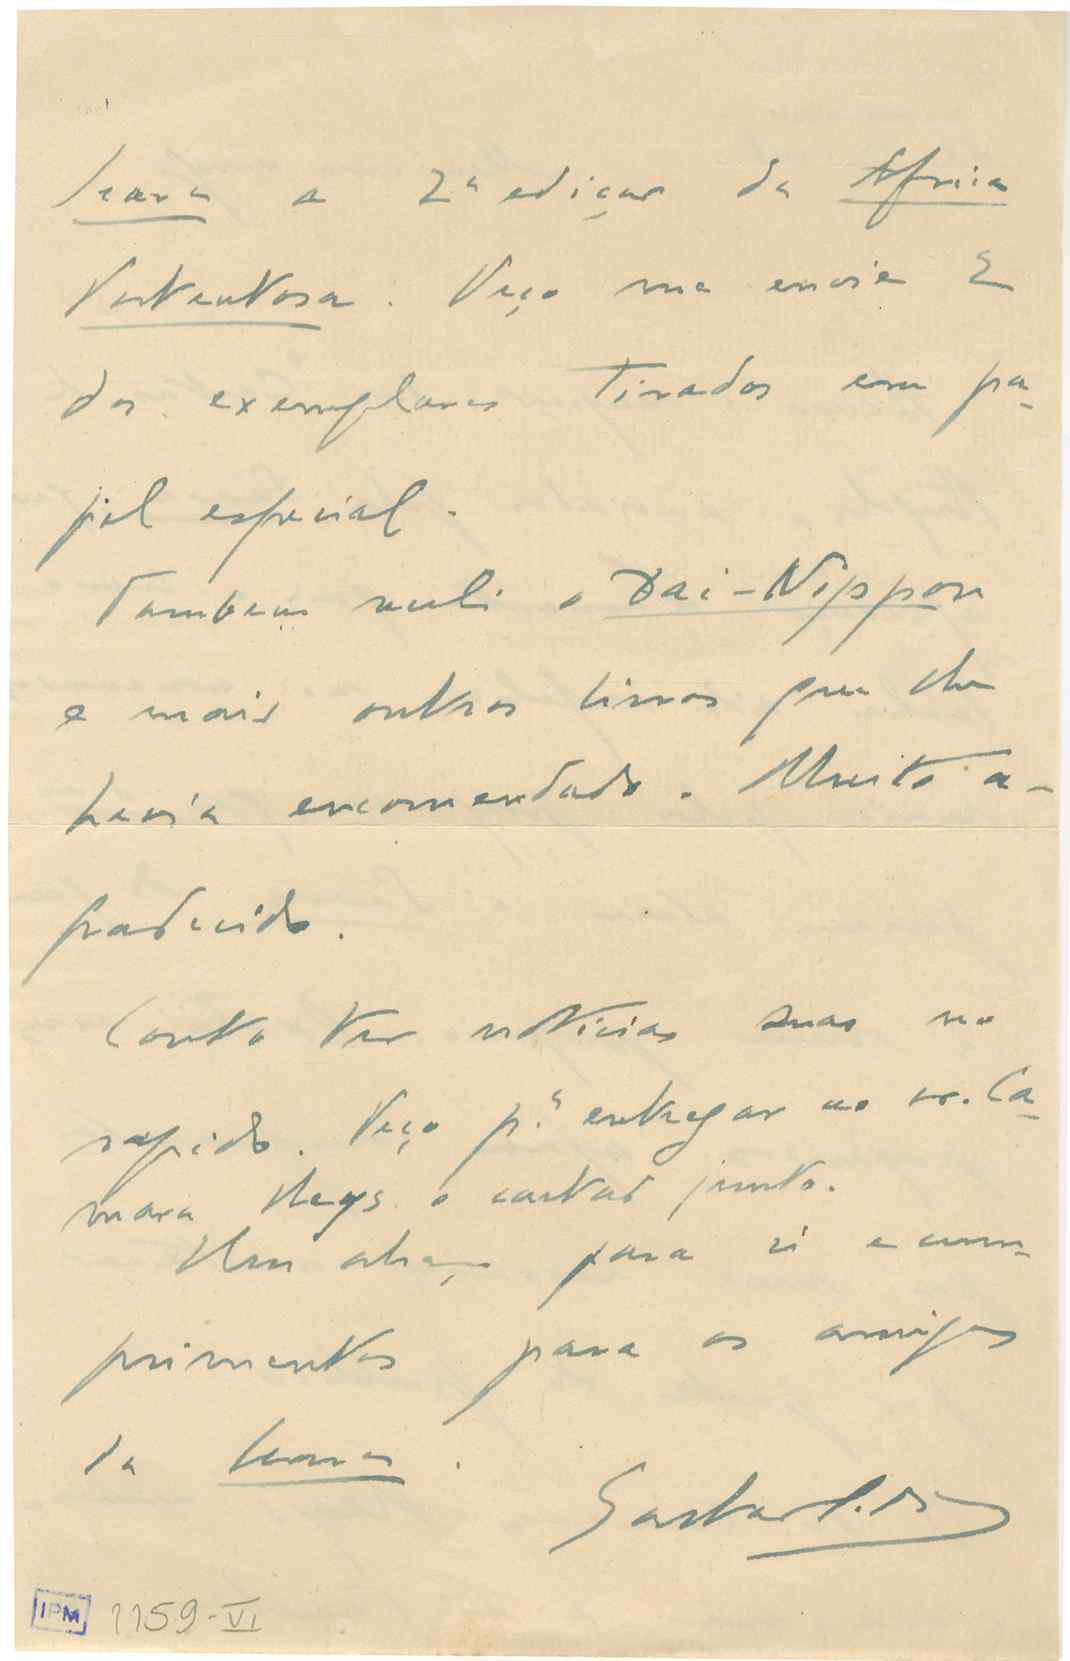 Seara a 2ª edição da Africa
Portentosa. Peço me envie 2
dos exemplares tirados em pa-
pel especial.
Tambem recebi o Dai-Nippon
e mais outros livros que lhe
havia encomendado. Muito a-
gradecido.
Conto ter noticias suas no
rapido. Peço p.ª entregar ao sr. Ca-
mara Reys o cartão junto.
Um abraço para si e cum-
primentos para os amigos
da Seara.
Gastão S. Dias
IPM 1159-VI